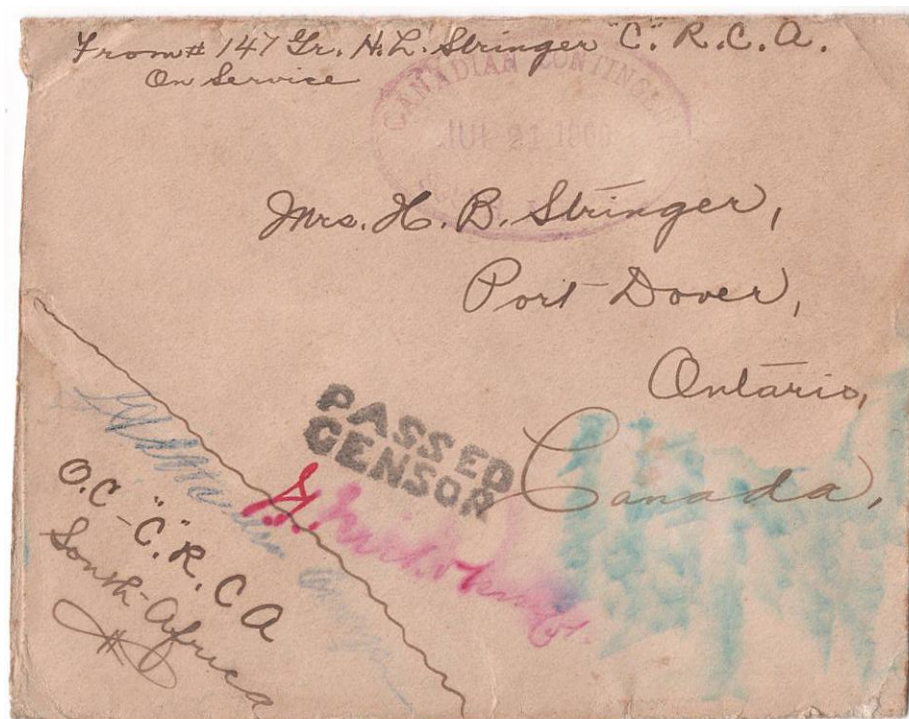 From # 147 Gr. H. L. Stringer "C." R. C. A.
On Service
CANADIAN CONTINGENT
Mrs. H. B. Stringer,
Port Dover,
Ontario,
Canada,
PASSED
CENSOR
O.C "C". R. C A
South-Africa